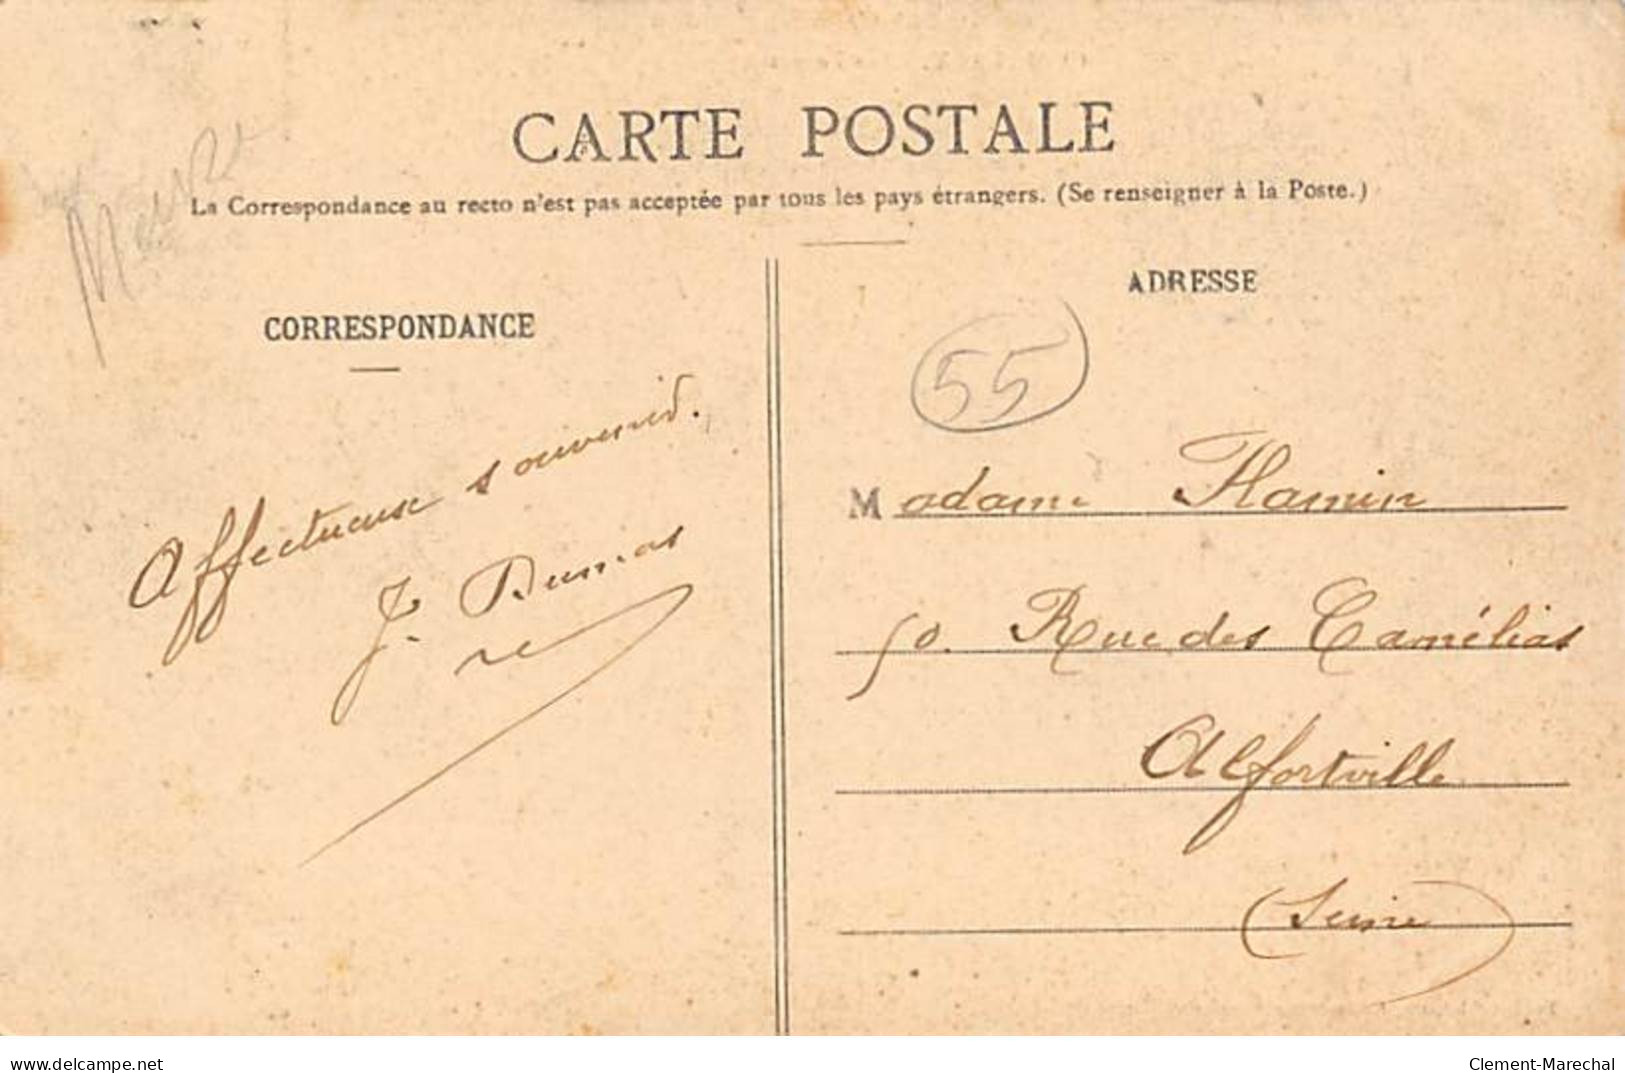 CARTE POSTALE
La Correspondance au recto n'est pas acceptée par tous les pays étrangers. (Se renseigner à la Poste.)
CORRESPONDANCE
Affectueux souvenir.
J. Dumas
ADRESSE
55
Madame Flamin
50. Rue des Camélias
Alfortville
(Seine)
www.delcampe.net
Clement-Marechal